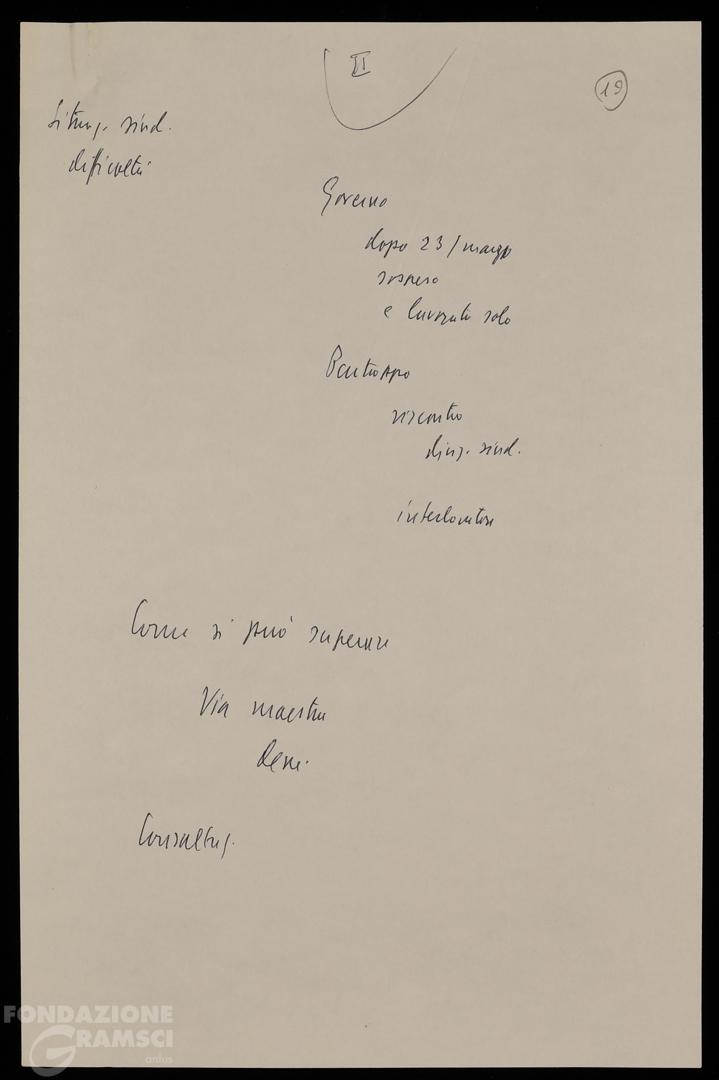 II
19
Situaz. sind.
difficoltà
Governo
dopo 23/marzo
sospeso
e lavorato solo
Purtroppo
riscontro
diraz. sind.
interlocutore
Come si può superare
Via maestra
dem.
Consultaz.
FONDAZIONE
GRAMSCI
onlus